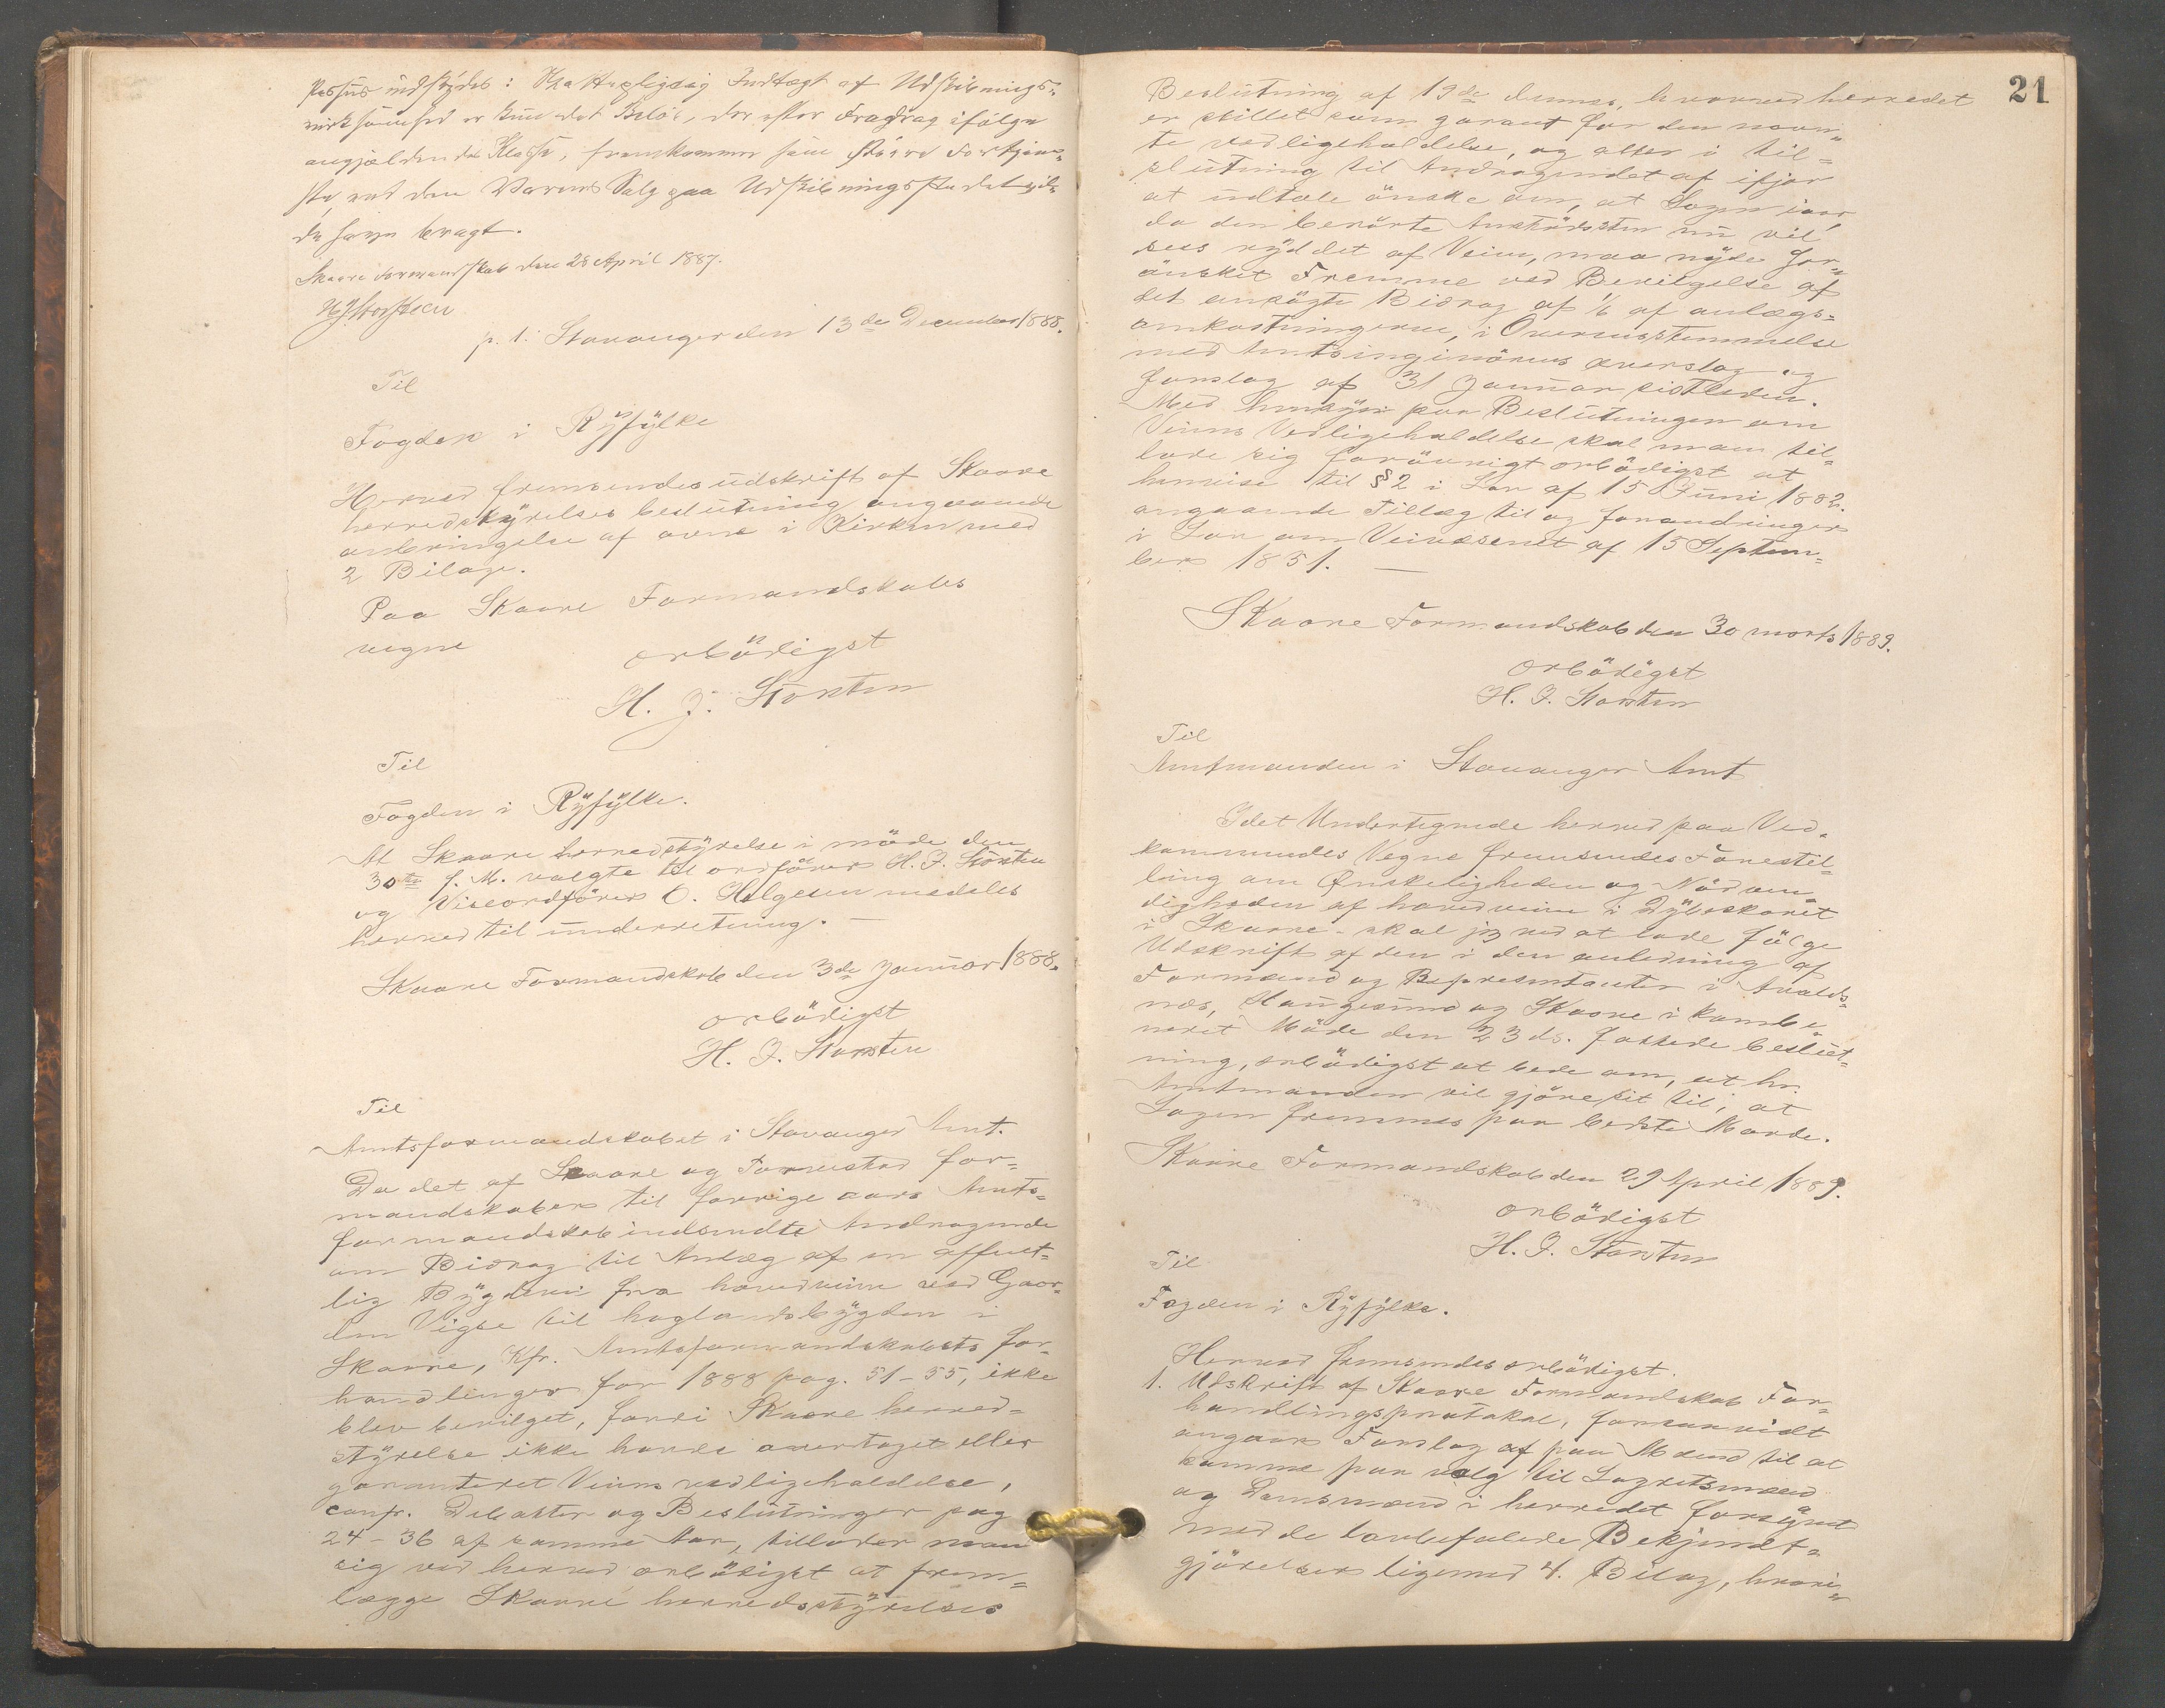 Passus indskydes: Skattepligtig Indtægt af Udskibnings-
virksomhed er kun det Beløb, der efter Fradrag ifølge
angjældende Klasse, fremkommer som større Fortjene-
ste ved den Varens Salg paa Udskibningsstedet
bragt.
Skaare Formandskab den 28 April 1887.
H J Storsteen
p. t. Stavanger den 13de December 1888.
Til
Fogden i Ryfylke
Herved fremsendes udskrift af Skaare
herredstyrelses beslutning angaaende
anbringelse af ovne i Kirken med
2 Bilage.
Paa Skaare Formandskabs
vegne
ærbödigst
H. J. Storsten
Til
Fogden i Ryfylke.
At Skaare herredstyrelse i möde den
30te f. M. valgte til ordförer H. J. Storsten
og Viseordförer O. Helgesen meddeles
herved til underretning. —
Skaare Formandskab den 3de Januar 1888.
ærbödigst
H. J. Storsten
Til
Amtsformandskabet i Stavanger Amt.
Da det af Skaare og Torvestad for-
mandskaber til forrige aars Amts-
formandskab indsendte Andragende
om Bidrag til Anlæg af en offent-
lig Bygdevei fra hovedveien ved Gaar-
den Vigse til haglandsbygden i
Skaare, Kfr. Amtsformandskabets for-
handlinger for 1888 pag. 51-55, ikke
blev bevilget, fordi Skaare herred-
styrelse ikke havde overtaget eller
garanteret Veiens vedligeholdelse,
confr. Debatter og Beslutninger pag
24-36 af samme Aar, tillader man
sig ved herved ærbödigst at frem-
lægge Skaare herredsstyrelses
21
Beslutning af 19de dennes, hvorved herredet
er stillet som garant for den nævn-
te vedligeholdelse, og atter i til-
slutning til Andragendet af ifjor
at udtale önske om, at Sagen iaar,
da den berörte Anstödssten nu vil
sees ryddet af Veien, maa nyde for-
önsket Fremme ved Bevilgelse af
det ansögte Bidrag af 1/6 af anlægs-
omkostningerne, i Overensstemmelse
med Amtsingeniörens overslag og
forslag af 31 Januar sidstleden.
Med hensyn paa Beslutningen om
Veiens Vedligeholdelse skal man til-
lade sig forövrigt ærbödigst at
henvise til § 2 i Lov af 15 Juni 1882.
angaaende Tillæg til og forandringer
i Lov om Veivæsenet af 15 Septem-
ber 1851. —
Skaare Formandskab den 30 marts 1889.
ærbödigst
H. J. Storsten
Til
Amtmanden i Stavanger Amt
Idet Undertegnede herved paa Ved-
kommendes Vegne fremsendes Forestil-
ling om Ønskeligheden og Nödven-
digheden af hovedveien i Dybeskaret
i Skaare - skal jeg ved at lade fölge
Udskrift af den i den anledning af
Formænd og Repræsentanter i Avalds-
nes, Haugesund og Skaare i kombi-
neret Möde den 23 ds. fattede beslut-
ning, ærbödigst at bede om, at hr.
Amtmanden vil gjöre sit til, at
Sagen fremmes paa bedste Maade.
Skaare Formandskab den 29 April 1889.
ærbödigst
H. J. Storsten
Til
Fogden i Ryfylke.
Herved fremsendes ærbödigst.
1. Udskrift af Skaare Formandskab For-
handlingsprotokol, forsaavidt
angaar Forslag af paa Mænd til at
komme paa valg til Lagretsmænd
og Domsmænd i herredet forsynet
med de lovbefalede Bekjendt-
gjörelser ligesaa 4. Bilag, hvori-